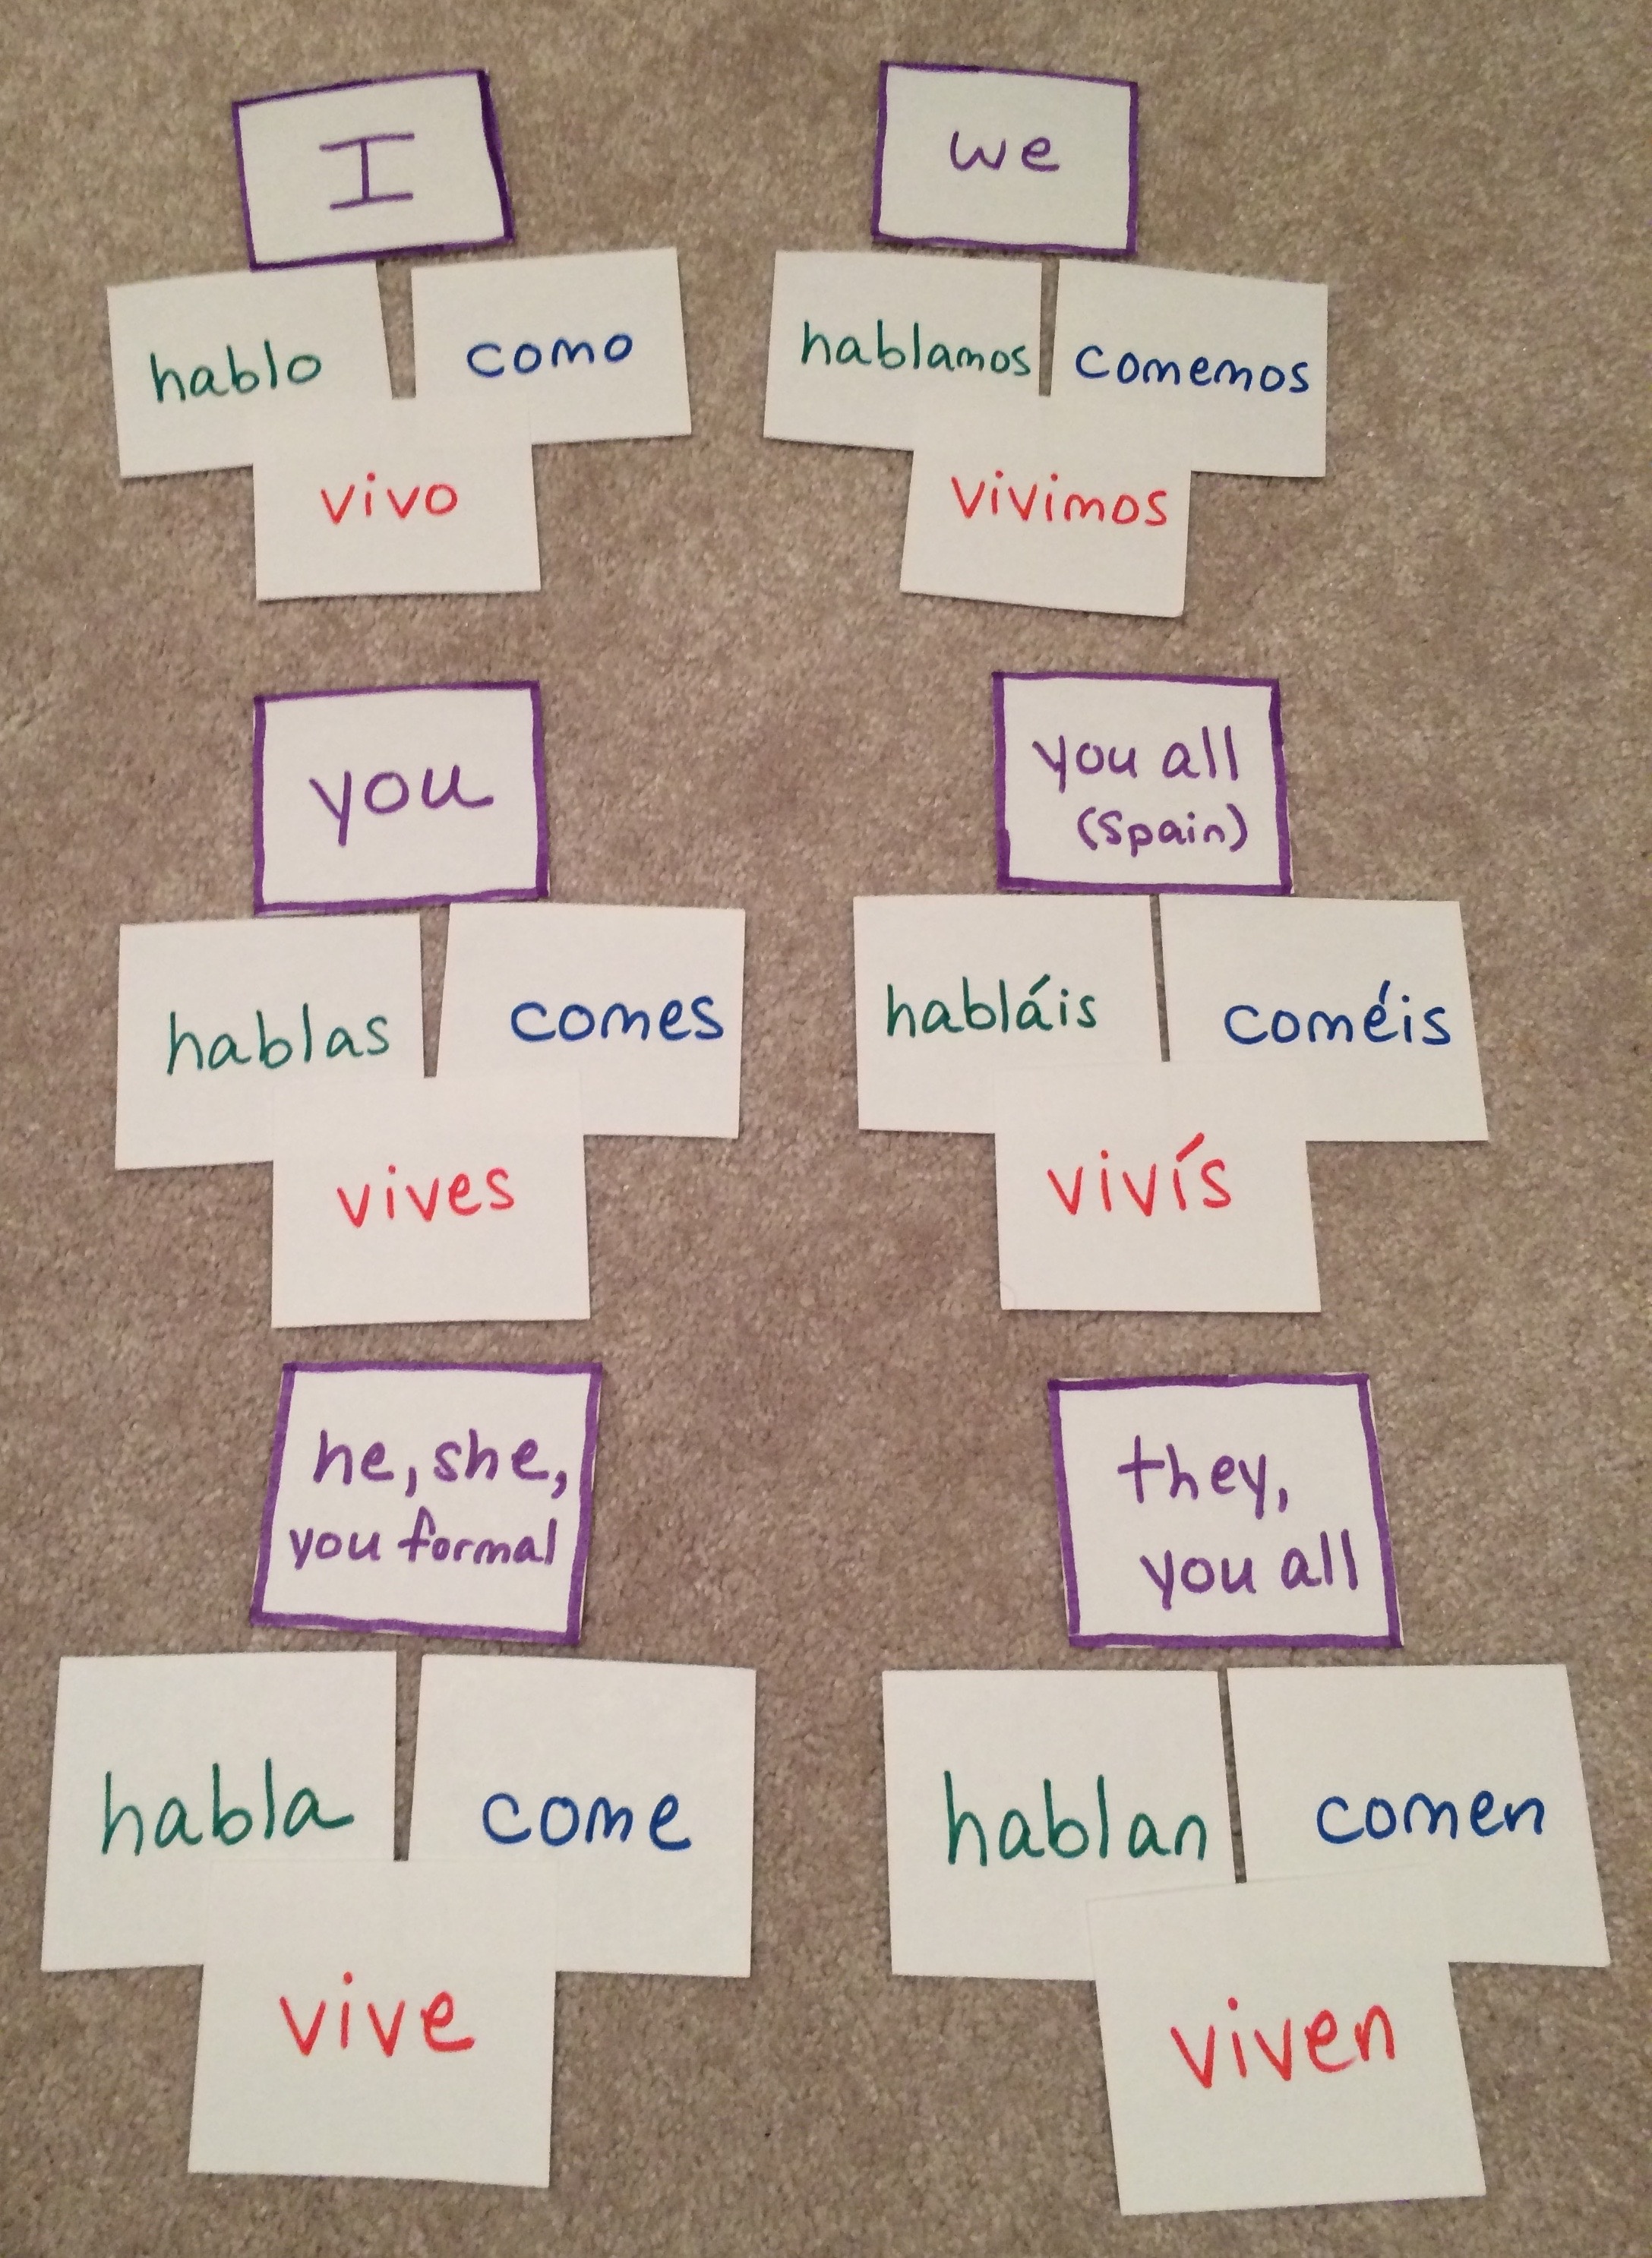 I
hablo
como
vivo
we
hablamos
comemos
vivimos
you
hablas
comes
vives
you all
(Spain)
habláis
coméis
vivís
he, she,
you formal
habla
come
vive
they,
you all
hablan
comen
viven